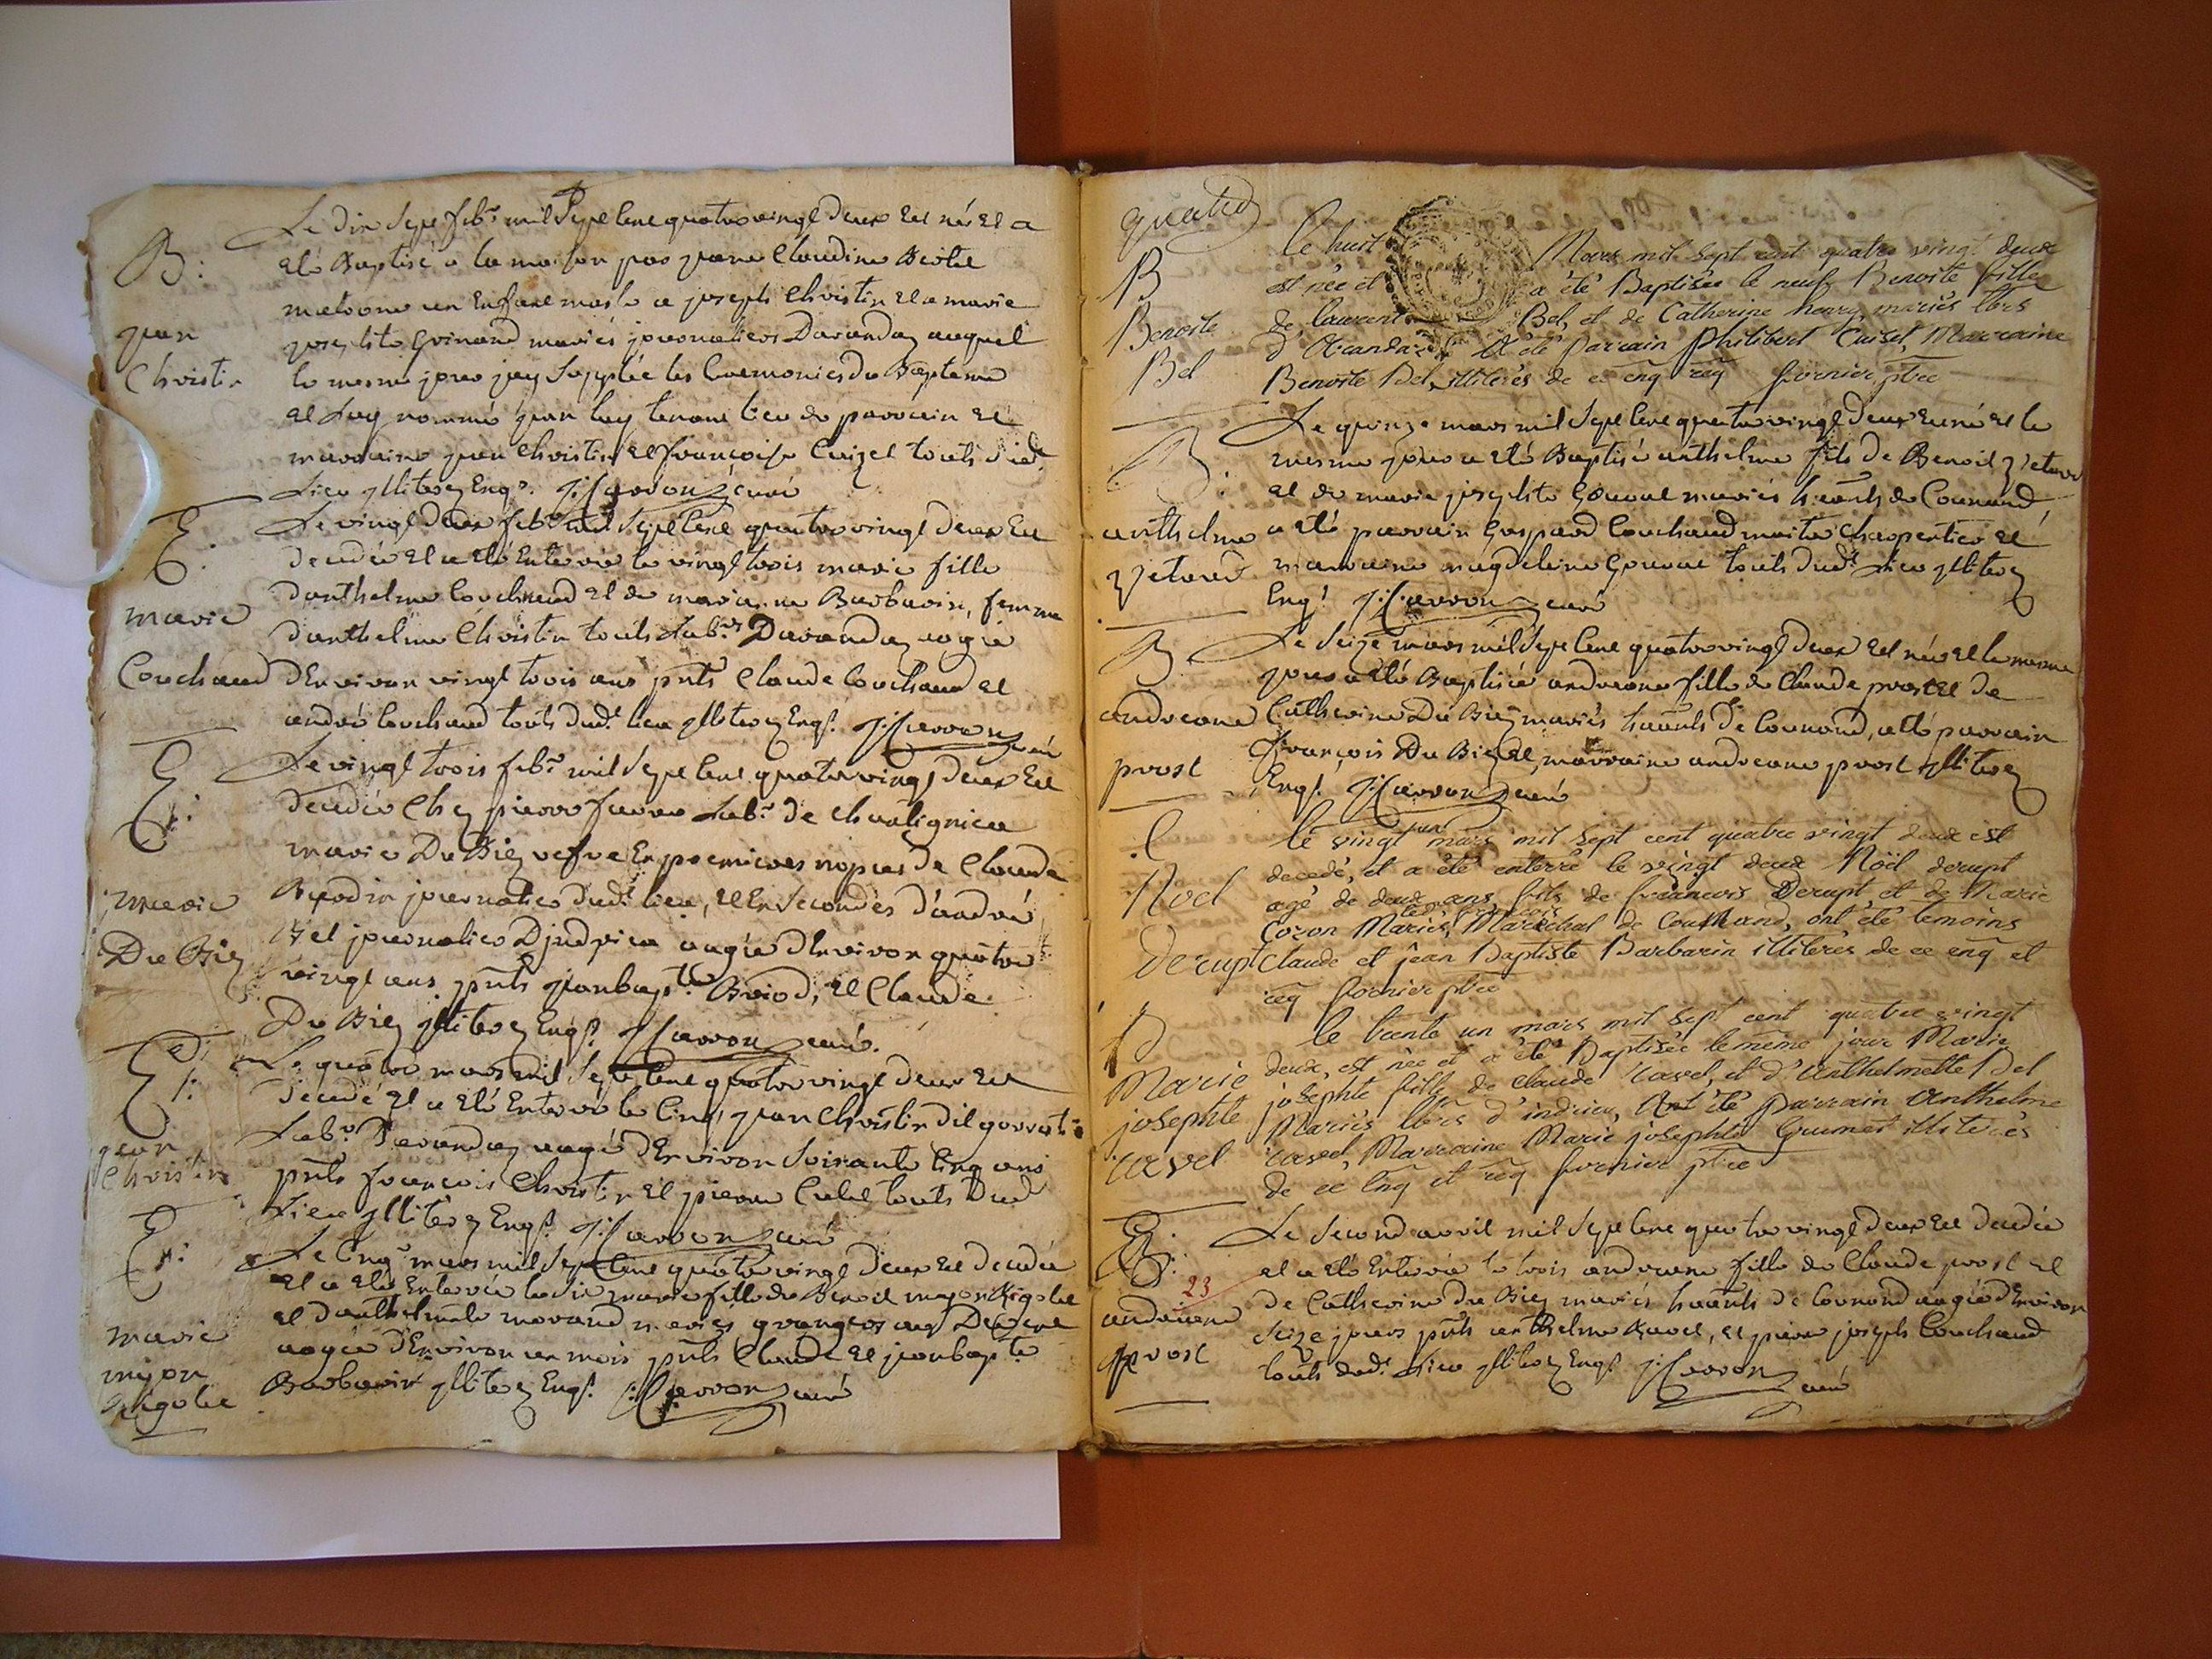 Le dix sept febr. mil sept cent quatre vingt deux est né et a
B:
eté Baptisé a la maison par jeane Claudine
matrone un Enfant masle a joseph Christin et a marie
jean
josephte Guinand mariés journaliers Darandaz auquel
Christin
le mesme jour jay Supplée les Ceremonies du Bapteme
et Lay nommé jean luy tenant lieu de parrain et
marraine jean Christin et françoise Cuizel touts dud.
Lieu illiterez Enqs. curé
E:
Le vingt deux febr. mil sept cent quatre vingt deux Est
decedée et a eté Enterrée le vingt trois marie fille
marie
danthelme Couchaud et de mariane Barbarin, femme
danthelme Christin touts Labrs Darandaz aagée
Couchaud
dEnviron vingt trois ans pnts Claude Couchaud et
andré Couchaud touts dudt. lieu illiterez Enqs. curé
E:
Le vingt trois febr. mil sept cent quatre vingt deux Est
decedée Chez pierre Labr. de
marie Du Biez vefve En premieres nopces de Claude
marie
journalier dudt. lieu, et En Secondes d'andré
Du Biez
journalier Djndrieu aagée dEnviron quatre
vingt ans pnts jeanbapte. et Claude
Du Biez illiterez Enqs. curé.
E:
Le quatre mars mil sept cent quatre vingt deux Est
decedé et a eté Enterré le Cinq jean Christin dit
Labr. Darandaz aagé dEnviron Soixante Cinq ans
jean
Christin
pnts françois Christin et pierre touts Dud.
Lieu illiterez Enqs. curé
E:
Le Cinq mars mil sept cent quatre vingt deux Est decedée
et a eté Enterrée le Six marie fille de Benoit myon Rigolet
marie
et danthelmete morand mariés grangers
myon
aagée dEnviron un mois pnts Claude et jeanbapte
Rigolet
Barbarin illiterez Enqs. curé
quatre
Le huit Mars mil sept cent quatre vingt deux
B
est née et a été Baptisée le neuf Benoite fille
Benoite
de laurent Bel, et de Catherine henry mariés lbrs
d'Arandaz A été Parrain Philibert Cuisel, Marraine
Bel
Benoite Bel, illiterés de ce enq req fornier ptre
B:
Le quinze mars mil sept cent quatre vingt deux est né et le
mesme jour a eté Baptisé anthelme fils de Benoit
et de marie josephte mariés hants de Connand
anthelme
a eté parrain Gaspard Couchaud maitre Charpentier et
marraine magdelaine touts dudt. Lieu illiterez
Enqs. curé
B
Le Seize mars mil sept cent quatre vingt deux est née et le mesme
jour a eté Baptisée andreane fille de Claude prost et de
andreane
Catherine Du Biez mariés hants de Connand, a eté parrain
prost
François Du Biez et, marraine andreane prost illiterez
Enqs. curé
le vingt un mars mil sept cent quatre vingt deux est
decedé, et a été enterré le vingt deux Nöel derupt
Noel
agé de deux ans fils de francois Derupt, et de Marie
Cozon Mariés, Maréchal de ont été temoins
Derupt
Claude et jean Baptiste Barbarin illiterés de ce enq et
req fornier ptre
B
le trente un mars mil sept cent quatre vingt
Marie
deux, est née et a été Baptisée le même jour Marie
josephte
josephte fille de Claude ravel, et d'Anthelmette Bel
Mariés lbrs d'indrieu, Ont été Parrain Anthelme
ravel
ravel, Marraine Marie josephte Guinet illiterés
de ce enq et req fornier ptre
E:
Le Second avril mil sept cent quatre vingt deux Est decedée
et a eté Enterrée le trois andreane fille de Claude prost et
23
andreane
de Catherine du Biez mariés hants de Connand aagée dEnviron
Seize jours pnts anthelme Ravel, et pierre joseph Couchaud
prost
touts dudt. Lieu illiterez Enqs. curé